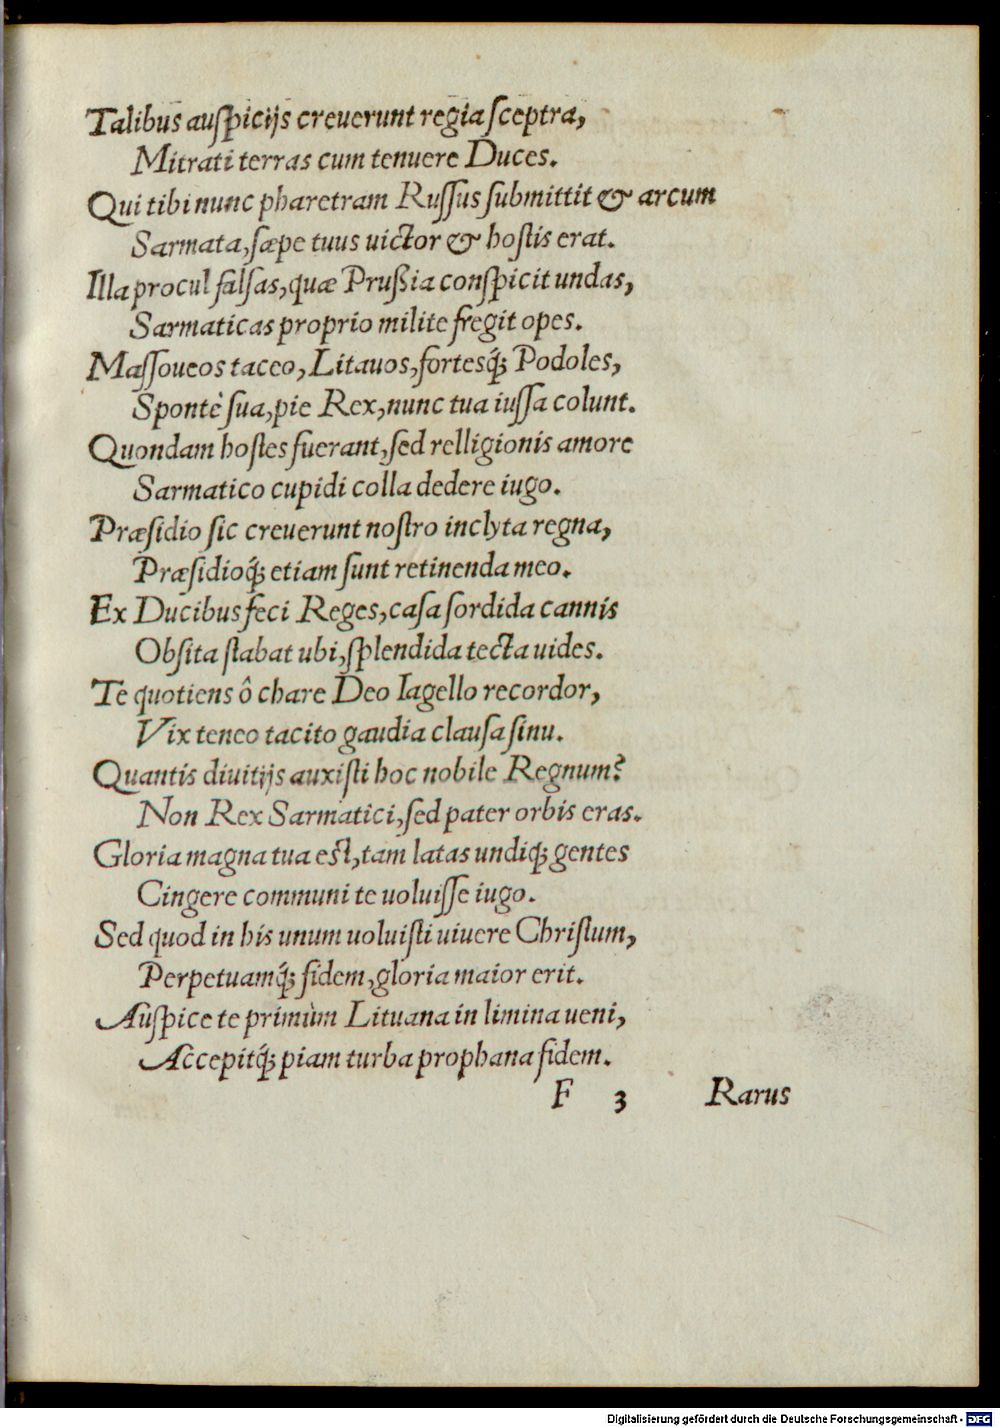 Talibus auſpicijs creuerunt regia ſceptra,
Mitrati terras cum tenuere Duces.
Qui tibi nunc pharetram Ruſſus ſubmittit & arcum
Sarmata, ſæpe tuus uictor & hoſtis erat.
Illa procul ſalſas, quæ Prußia conſpicit undas,
Sarmaticas proprio milite fregit opes.
Maſſoueos taceo, Litauos, fortesq́; Podoles,
Spontè ſua, pie Rex, nunc tua iuſſa colunt.
Quondam hoſtes fuerant, ſed relligionis amore
Sarmatico cupidi colla dedere iugo.
Præſidio ſic creuerunt noſtro inclyta regna,
Præſidioq́; etiam ſunt retinenda meo.
Ex Ducibus feci Reges, caſa ſordida cannis
Obſita ſtabat ubi, ſplendida tecta uides.
Te quotiens ô chare Deo Iagello recordor,
Vix teneo tacito gaudia clauſa ſinu.
Quantis diuitijs auxiſti hoc nobile Regnum?
Non Rex Sarmatici, ſed pater orbis eras.
Gloria magna tua eſt, tam latas undiq́; gentes
Cingere communi te uoluiſſe iugo.
Sed quod in his unum uoluiſti uiuere Chriſtum,
Perpetuamq́; fidem, gloria maior erit.
Auſpice te primùm Lituana in limina ueni,
Accepitq́; piam turba prophana fidem.
F 3 Rarus
Digitalisierung gefördert durch die Deutsche Forschungsgemeinschaft - DFG